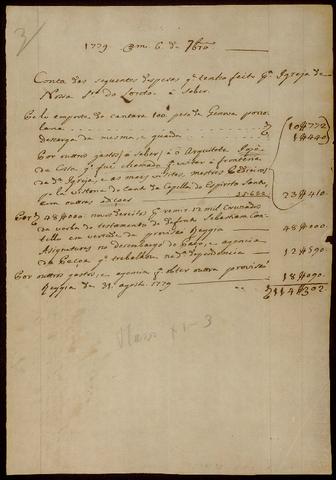 1779 Em 6 de 7bro
Conta das seguentes despesas q tenho feito pa Igreja de
Nossa Sra do Loreto a Saber
Pelo emporte do cantara 100 pesada Genova porro
lana 10#772
descarga da mesma, e guarda 1#440
Por outros gastos, a saber; a o Arquiteto
da Costa q fui chamado pa visitar a fronteria
da da Igreja, e as mais vizitas, mestres Pedreiros
pela vistoria do Canal da Capella do Espirito Santo
em outras 23#410
Por 48#000 novos direitos q remi 12 mil Cruzados
da verba do testamento do defunto Sebastiam Cas
tello em vertude da provizão Reggia 48#000
Asignaturas no desembargo do Paço, e agencia
da Pecoa q trabalhou na da dependencia 12#590
Por outros gastos, e agencia pa obter outra provizão
Reggia de 31 agosto 1779 18#090
114#302